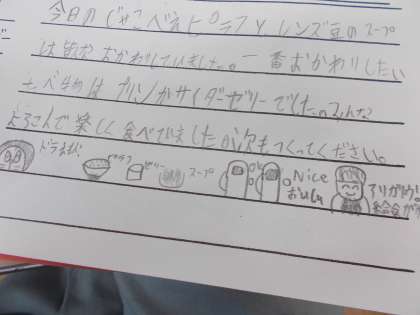 今日のじゃこべえピラフとレンズ豆のスープ
は皆おかわりしていました。一番おかわりしたい
たべ物はプリンかサイダーゼリーでした。みんな
よろこんで楽しく食べていましたが次もつくってください。
ピラフ ゼリー スープ Nice おいしい アリガトウ!